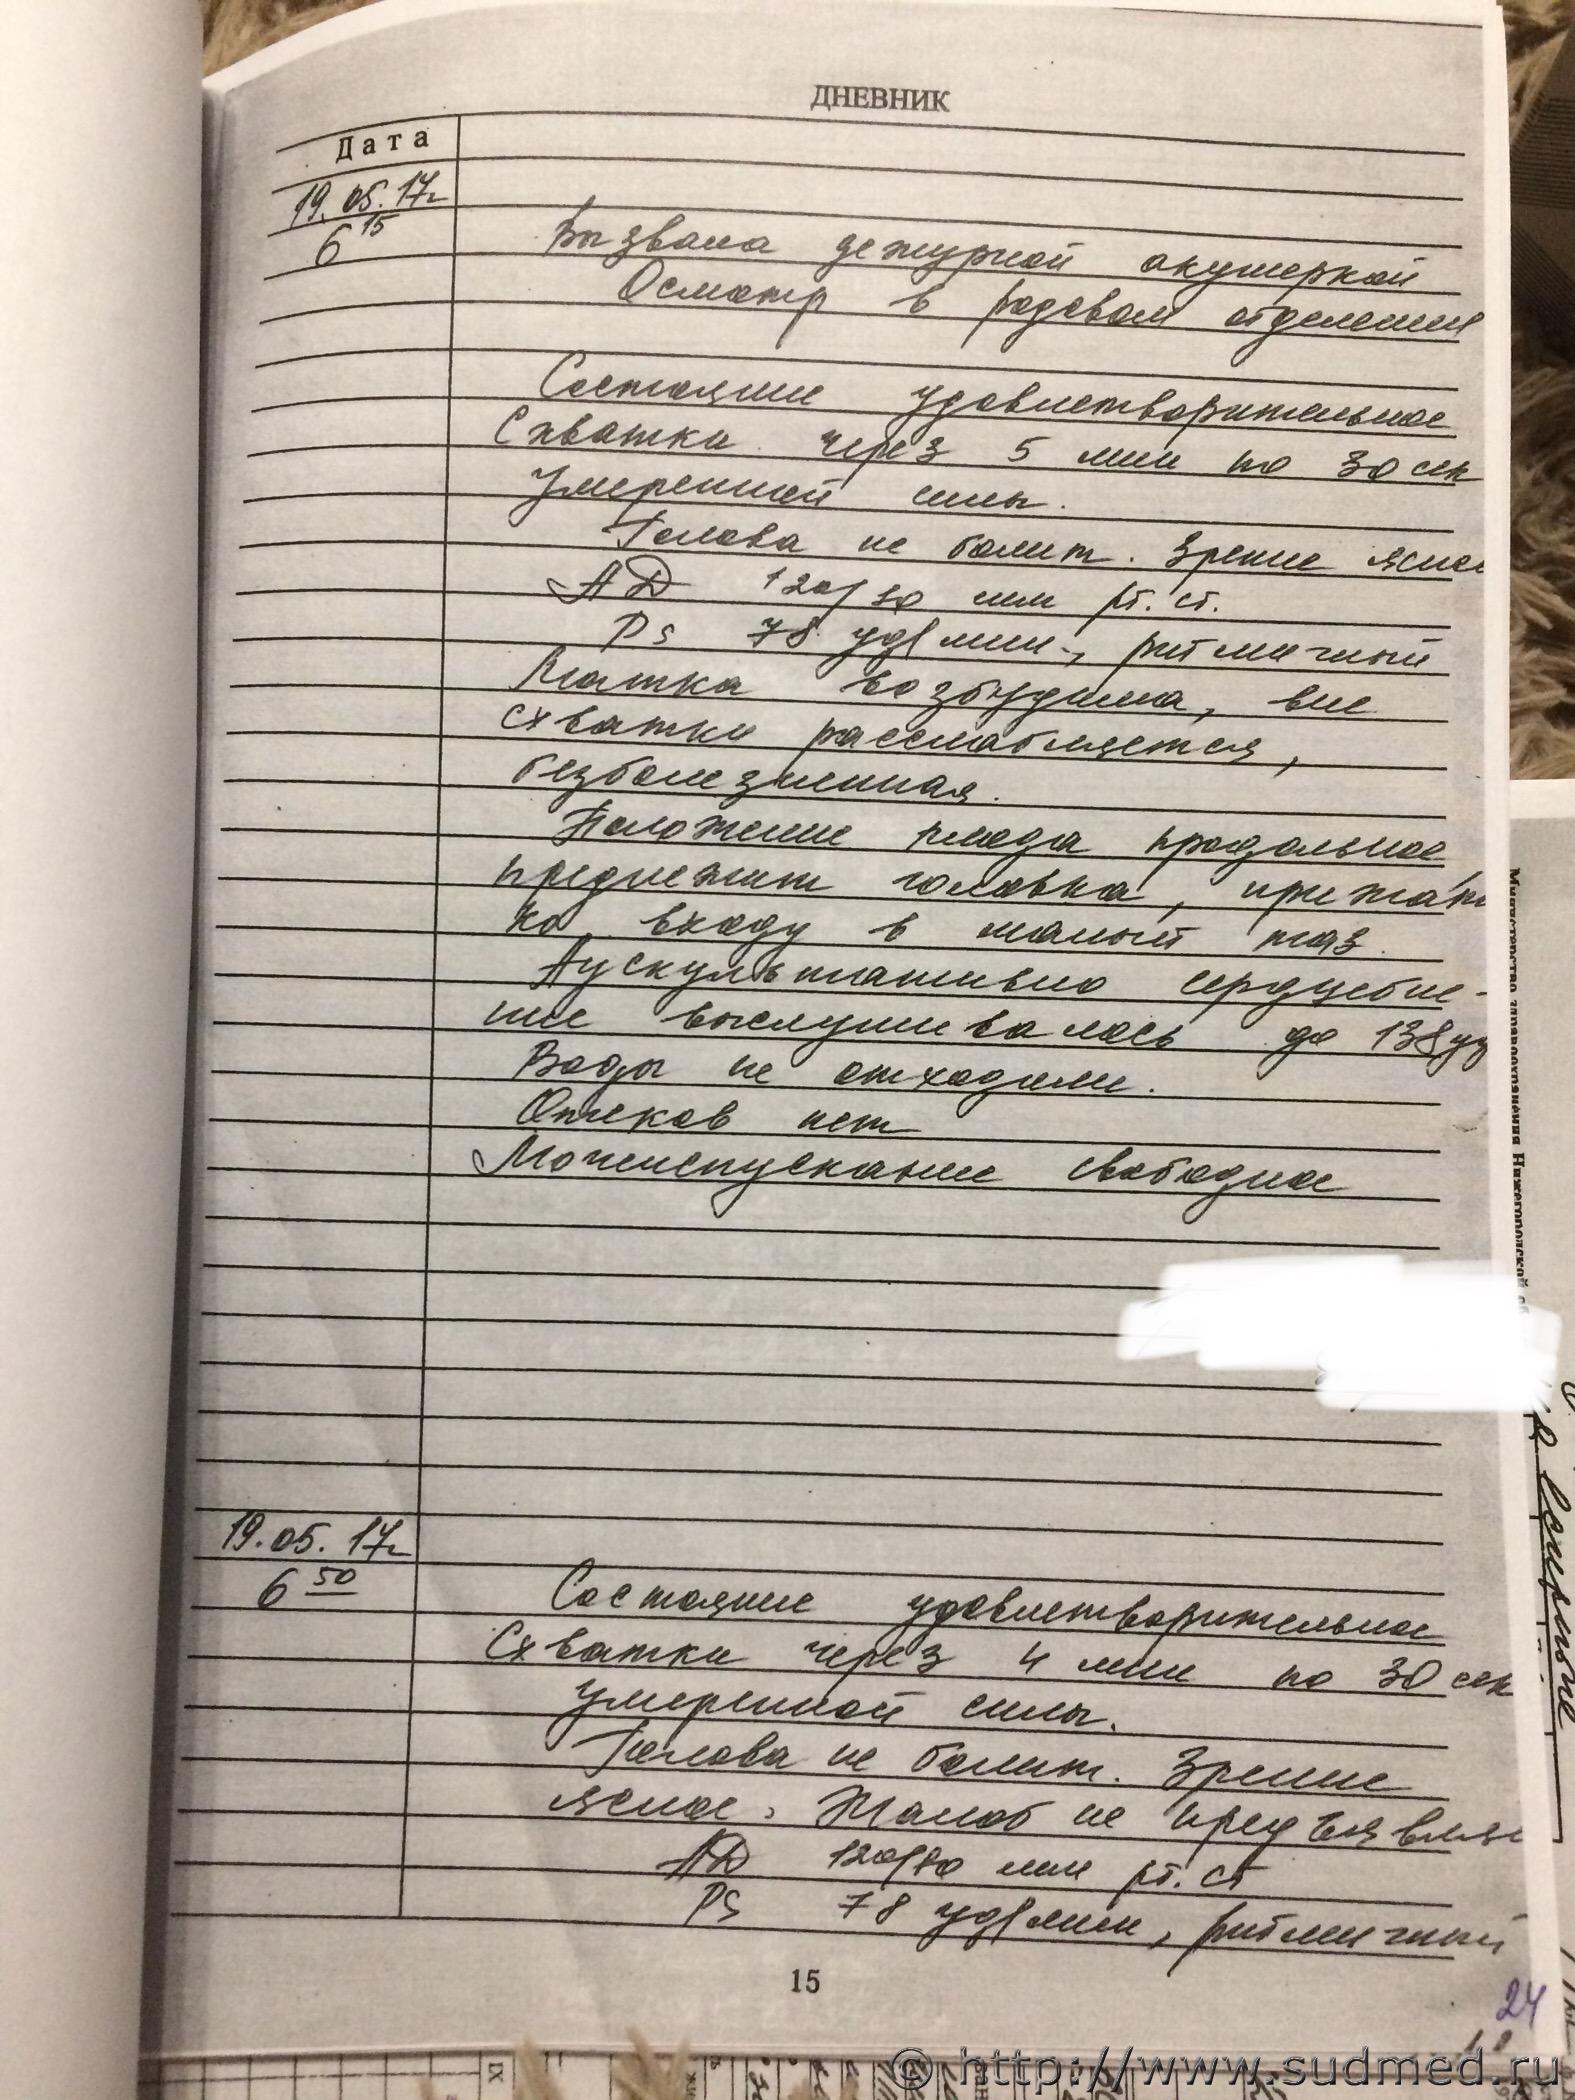 ДНЕВНИК
Дата
19.05.17г
6 15
Вызвана дежурной акушеркой
Осмотр в родовом отделении
Состояние удовлетворительное
Схватки через 5 мин по 30 сек
умеренной силы.
Голова не болит. Зрение ясное
АД 120/80 мм рт. ст.
Ps 78 уд/мин., ритмичный
Матка возбудима, вне
схватки расслабляется,
безболезненная.
Положение плода продольное
предлежит головка, прижата
ко входу в малый таз.
Аускультативно сердцебие-
ние выслушивалось до 138 уд
Воды не отходили.
Отеков нет
Мочеиспускание свободное
19.05.17г
6 50
Состояние удовлетворительное
Схватки через 4 мин по 30 сек
умеренной силы.
Голова не болит. Зрение
ясное. Жалоб не предъявля
АД 120/80 мм рт. ст
Ps 78 уд/мин, ритмичный
15
24
Министерство здравоохранения Нижегородской об
© http://www.sudmed.ru